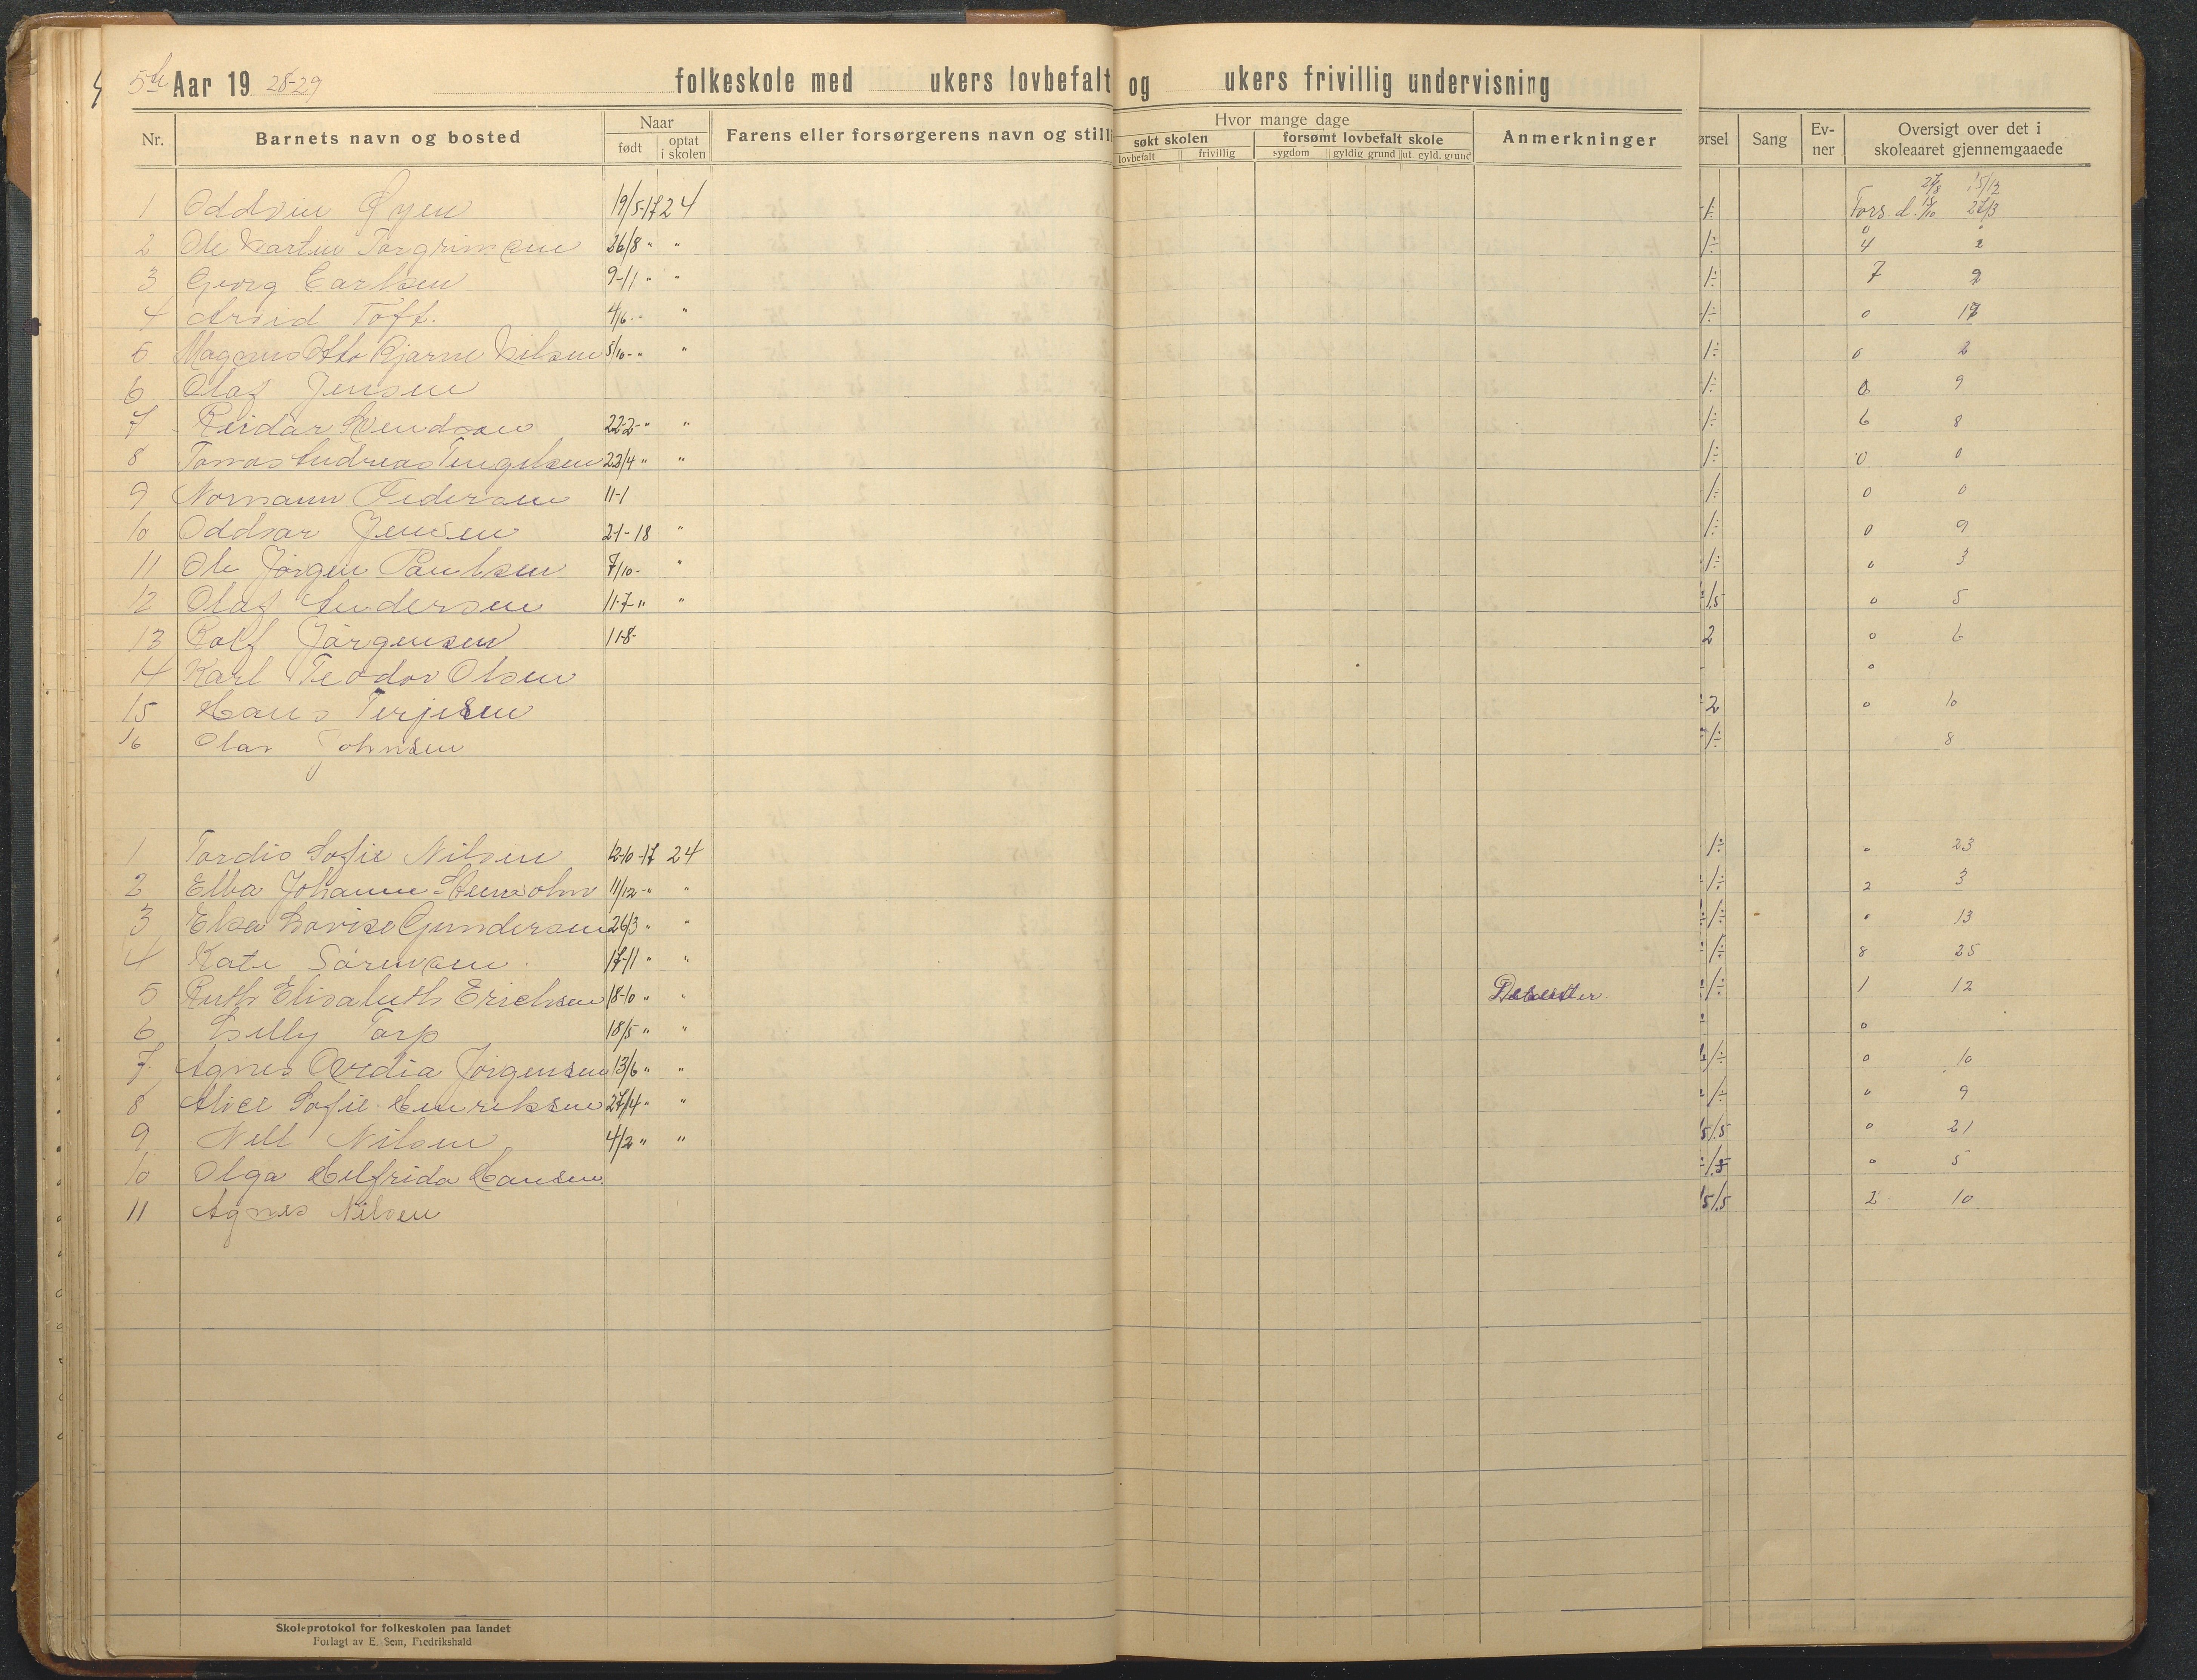 5te Aar 19 28-29 folkeskole med ukers lovbefalt og ukers frivillig undervisning
Nr. Barnets navn og bosted Naar født optat i skolen Farens eller forsørgerens navn og still Hvor mange dage søkt skolen lovbefalt frivillig forsømt lovbefalt skole sygdom gyldig grund ut. gyld. grund Anmerkninger ørsel Sang Ev-ner Oversigt over det i skoleaaret gjennemgaaede
27/8 15/12
1 Oddvin Øyen 19/5-17 24 Fors. d. 27/3
2 Ole Martin Torgrimsen 26/8 " " 4 2
3 Georg Carlsen 9-11 " " 7 9
4 Arvid Toft. 4/6 - " " 0 17
5 Magnus Otto Bjarne Nilsen 5/10- " " 0 2
6 Olaf Jensen 0 9
7 Reidar Svendsen 22-2- " " 6 8
8 Tomas Andreas Tengelsen 23/4 " " 0 0
9 Normann Pedersen 11-1 0 0
10 Oddvar Jensen 21-18 " 0 9
11 Ole Jörgen Paulsen 7/10- " 0 3
12 Olaf Andersen 11-7 " " 0 5
13 Rolf Jörgensen 11-8- 2 0 6
14 Karl Teodor Olsen 0
15 Hans Terjesen 2 0 10
16 Olav Johnsen 8
1 Tordis Sofie Nilsen 12-10-17 24 0 23
2 Elba Johanne Stensohn 11/12- " " 2 3
3 Elsa Lovise Gundersen 26/3 " " 0 13
4 Kate Sörensen 17-11 " " 8 25
5 Ruth Elisabeth Erichsen 18-10 " " 1 12
6 Lilly Tarp 18/5 " " 0
7 Agnes Ovedia Jörgensen 13/6 " " 0 10
8 Alice Sofie Henriksen 27/4 " " 0 9
9 Nell Nilsen 4/2 " " 0 21
10 Olga Helfrida Hansen 0 5
11 Agnes Nilsen 2 10
Skoleprotokol for folkeskolen paa landet
Forlagt av E. Sem, Fredrikshald